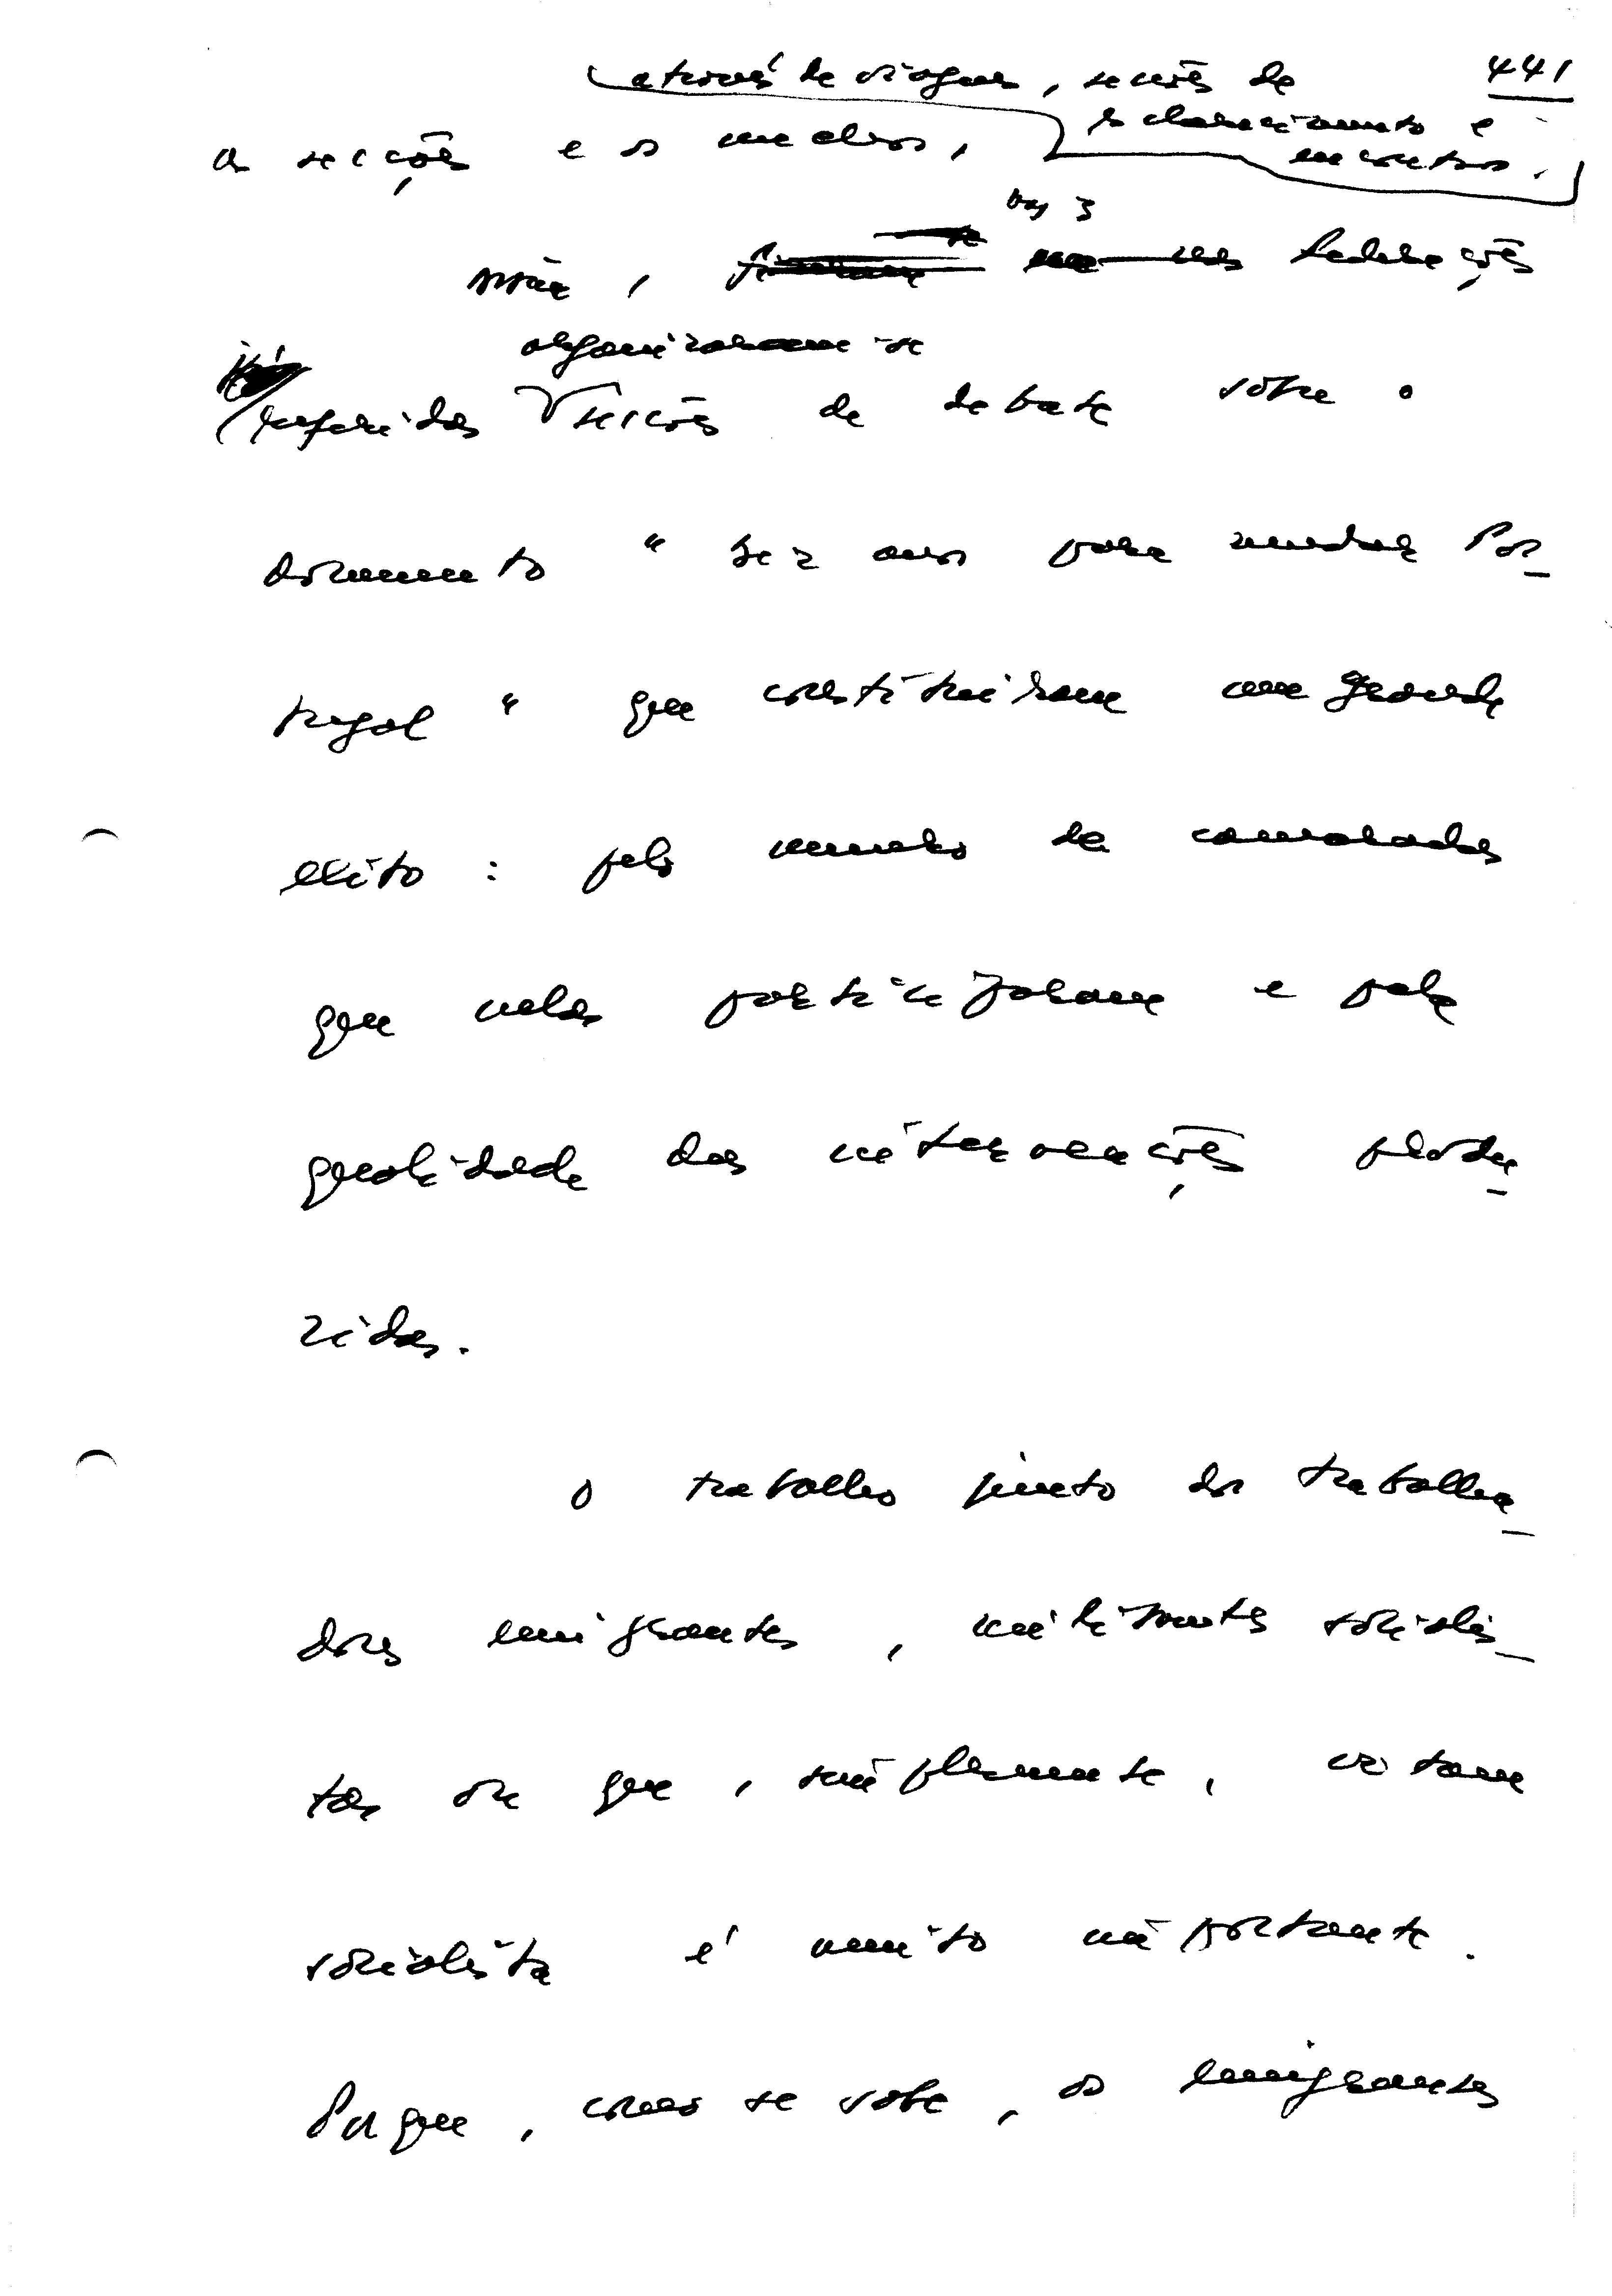 441
através de viagens, sessões de
esclarecimento e
encontros.
as secções e os núcleos,
nas 3
Federações
organizaram-se
já referidas sessões de debate sobre o
documento " Dez anos para mudar Por-
tugal " que constituiram um grande
exito : pelo numero de camaradas
que nelas participaram e pela
qualidade das intervenções produ-
zidas.
O trabalho junto dos trabalha-
dores emigrantes, militantes socialis-
tas ou que, simplesmente, votam
socialista é muito importante.
Porque, como se sabe, os emigrantes